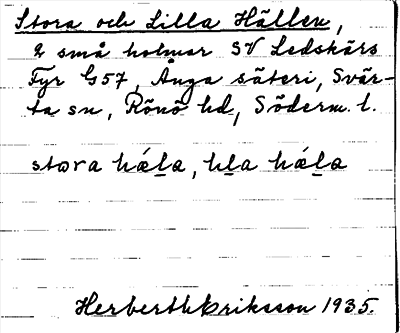 Stora och Lilla Hällen,
2 små holmar SV Ledskärs
Fyr G57, Ånga säteri, Svär-
ta sn, Rönö hd, Söderm. l.
stora hä́la, lila hä́la
Herberth Eriksson 1935.